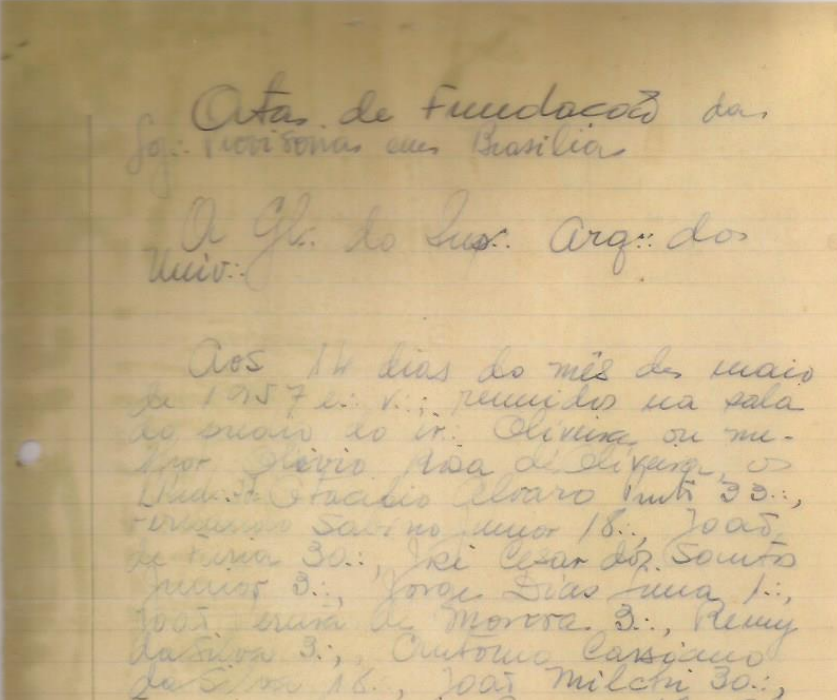 Atas de Fundacão das
Loj∴ Provisorias em Brasilia
A Gl∴ do Sup∴ Arq∴ dos
Univ∴
Aos 14 dias do mês de maio
de 1957 e∴ v∴; reunidos na sala
do ir∴ Oliveira ou me-
lhor Olivio Rosa de Oliveira, os
Otacilio Alvaro 33∴,
Fernando Sabino Junior 18∴, João
de Faria 30∴, José Cesar dos Santos
Junior 3∴, Jorge Dias 1∴,
João de Moreira 3∴, Remy
da Silva 3∴, Antonio Cassiano
da Silva 18∴, João Milchi 30∴,